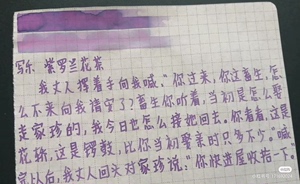 写乐 紫罗兰花茶
我丈人撑着手向我喊:“你过来,你这畜生,怎
么不来向我请安了?畜生你听着,当初是怎么娶
走家珍的,我今日也怎么接她回去。你看看,这是
花轿,这是锣鼓,比你当初娶亲时只多不少。”喊
完以后,我丈人回头对家珍说:“你快进屋收拾一下。”